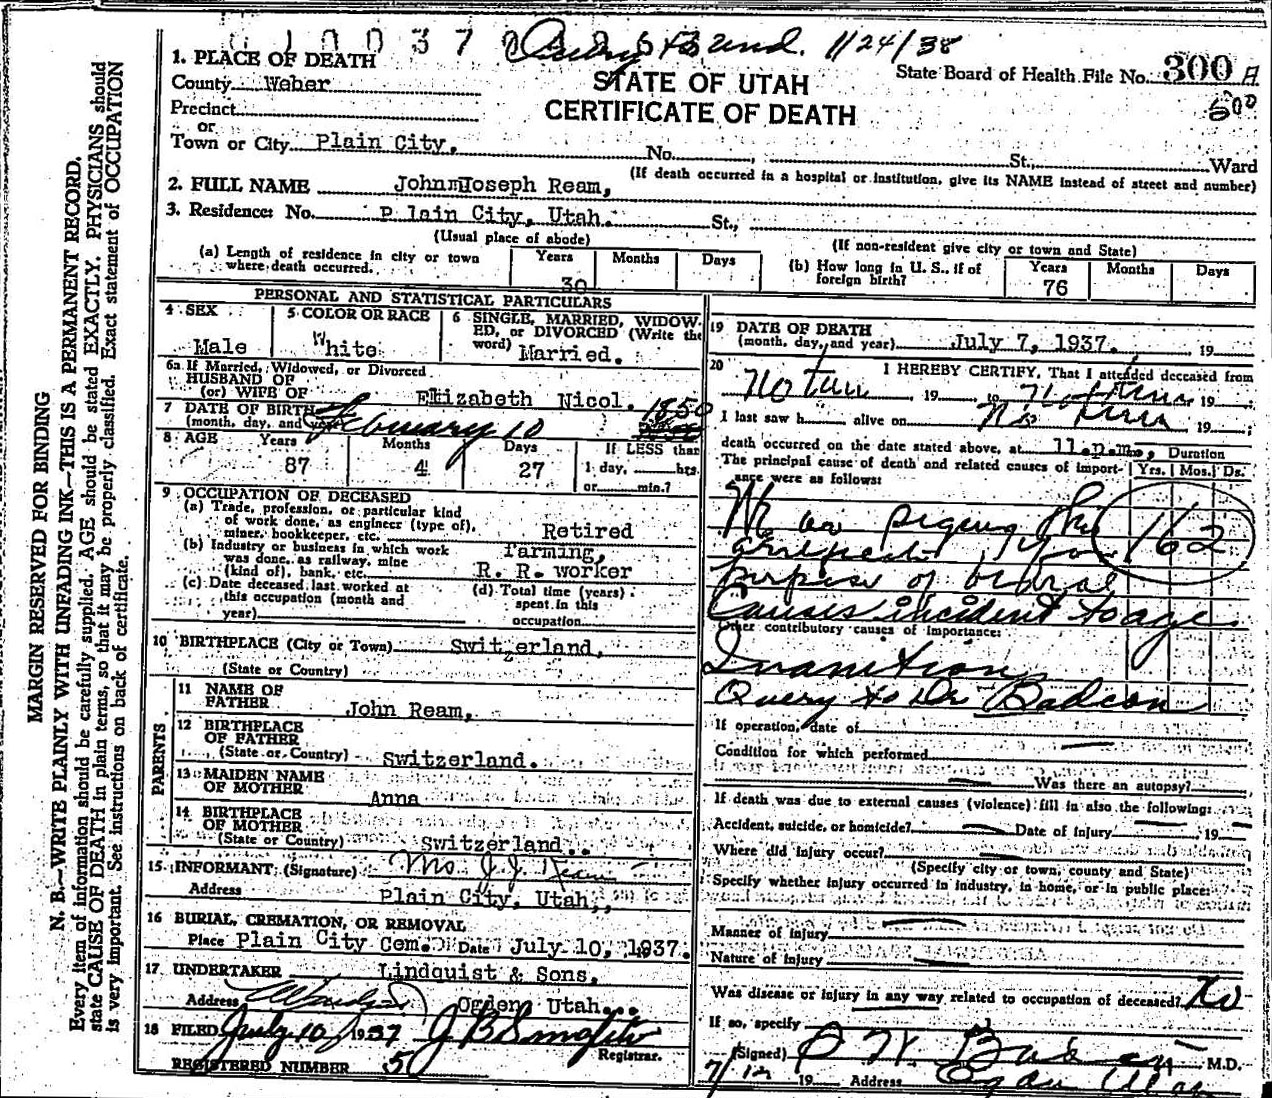 0 1 0 0 3 7 0
1/24/38
1. PLACE OF DEATH
STATE OF UTAH
CERTIFICATE OF DEATH
State Board of Health File No. 300 A
500
County Weber
Precinct
or
Town or City Plain City, No. , St., Ward
(If death occurred in a hospital or institution, give its NAME instead of street and number)
2. FULL NAME John Joseph Ream,
3. Residence: No. Plain City, Utah. St.,
(Usual place of abode) (If non-resident give city or town and State)
(a) Length of residence in city or town where death occurred. Years 30 Months Days
(b) How long in U. S., if of foreign birth? Years 76 Months Days
PERSONAL AND STATISTICAL PARTICULARS
4 SEX Male
5 COLOR OR RACE White
6 SINGLE, MARRIED, WIDOWED, or DIVORCED (Write the word) Married.
6a If Married, Widowed, or Divorced
HUSBAND OF
(or) WIFE OF Elizabeth Nicol.
7 DATE OF BIRTH
(month, day, and year) February 10 1850
8 AGE Years 87 Months 4 Days 27 If LESS than
1 day, hrs.
or min.?
9 OCCUPATION OF DECEASED
(a) Trade, profession, or particular kind
of work done, as engineer (type of),
miner, bookkeeper, etc. Retired
(b) Industry or business in which work
was done, as railway, mine
(kind of), bank, etc. farming,
R. R. worker
(c) Date deceased last worked at
this occupation (month and
year)
(d) Total time (years)
spent in this
occupation
10 BIRTHPLACE (City or Town) Switzerland,
(State or Country)
PARENTS
11 NAME OF
FATHER John Ream,
12 BIRTHPLACE
OF FATHER
(State or Country) Switzerland.
13 MAIDEN NAME
OF MOTHER Anna
14 BIRTHPLACE
OF MOTHER
(State or Country) Switzerland..
15 INFORMANT (Signature) Mrs J. J. Ream
Address Plain City, Utah,,
16 BURIAL, CREMATION, OR REMOVAL
Place Plain City Cem. Date July 10, 1937.
17 UNDERTAKER Lindquist & Sons,
Address Ogden Utah...
18 FILED July 10, 1937 J B
Registrar.
REGISTERED NUMBER 50
19 DATE OF DEATH
(month, day, and year) July 7, 1937. , 19
20 I HEREBY CERTIFY, That I attended deceased from
19 to 19
I last saw h alive on 19 ;
death occurred on the date stated above, at 11.p.m., Duration
The principal cause of death and related causes of importance were as follows: Yrs. Mos. Ds.
162
purpose of burial
Causes incident to age
Other contributory causes of importance:
Inanition
Query to Dr
If operation, date of
Condition for which performed
Was there an autopsy?
If death was due to external causes (violence) fill in also the following:
Accident, suicide, or homicide? Date of injury 19
Where did injury occur?
(Specify city or town, county and State)
Specify whether injury occurred in industry, in home, or in public place:
Manner of injury
Nature of injury
Was disease or injury in any way related to occupation of deceased? No
If so, specify
(Signed) M.D.
7/12 19 Address Ogden Utah
MARGIN RESERVED FOR BINDING
N. B.—WRITE PLAINLY WITH UNFADING INK—THIS IS A PERMANENT RECORD.
Every item of information should be carefully supplied. AGE should be stated EXACTLY. PHYSICIANS should
state CAUSE OF DEATH in plain terms, so that it may be properly classified. Exact statement of OCCUPATION
is very important. See instructions on back of certificate.